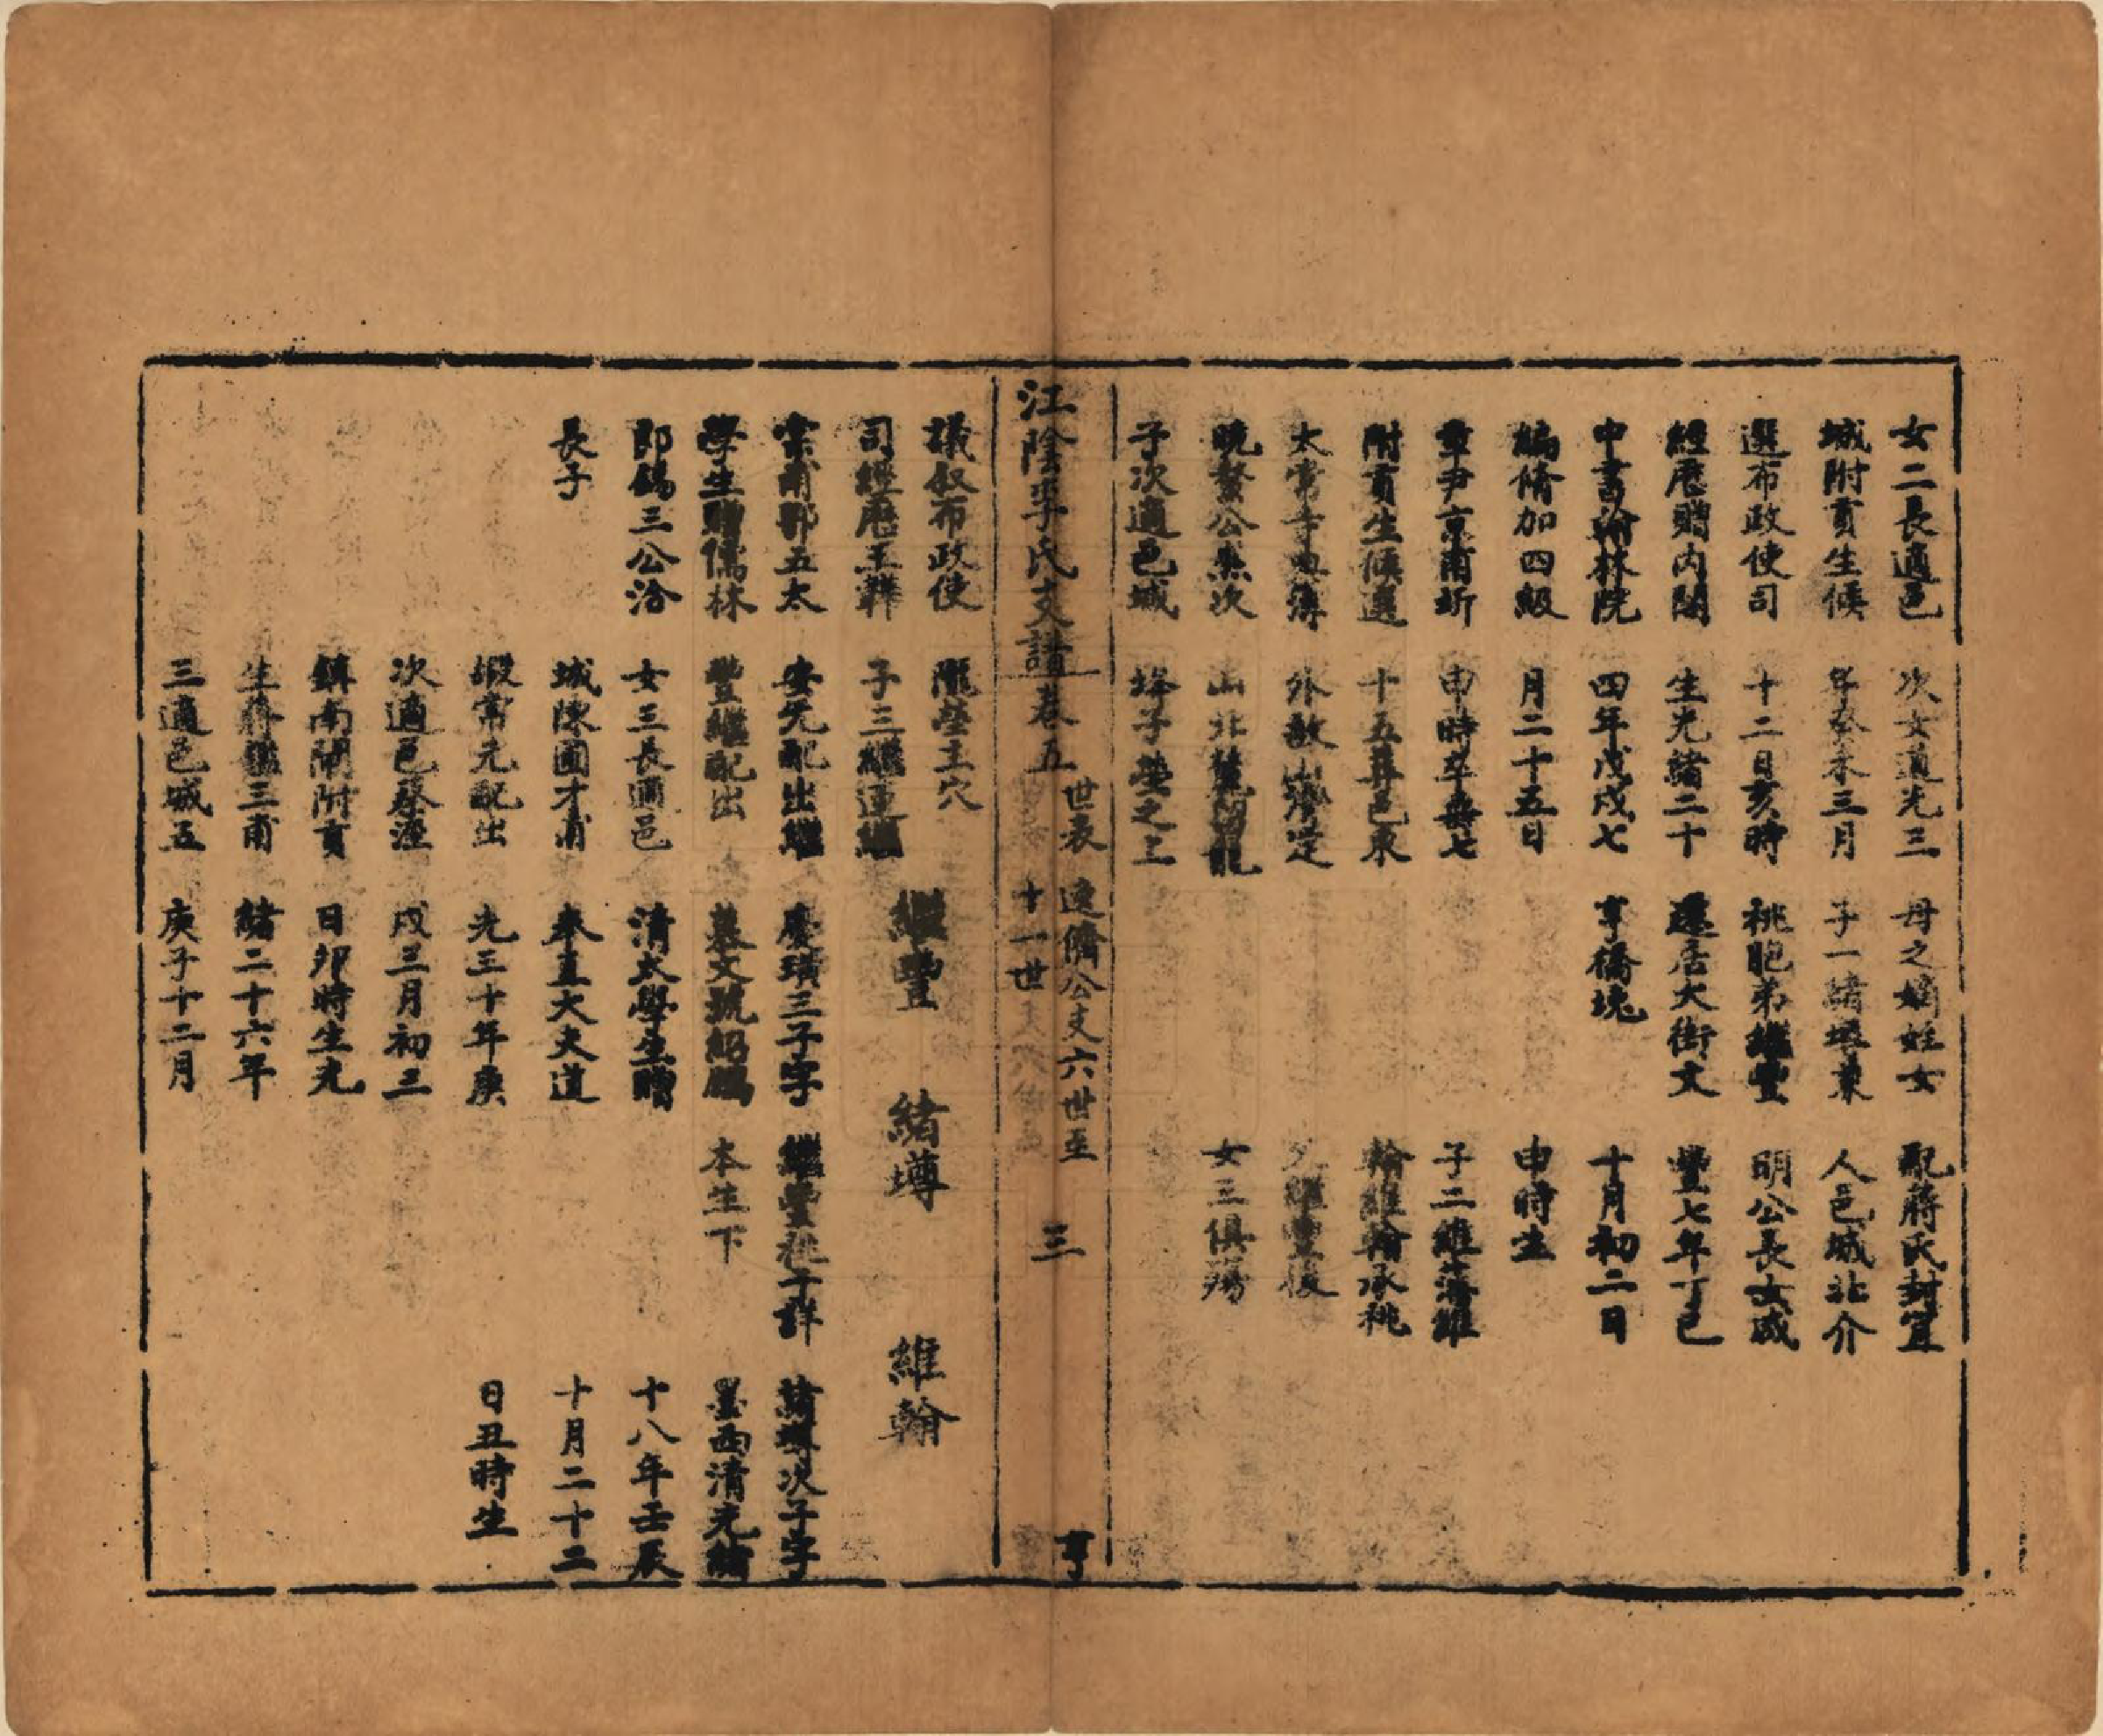 女二長適邑
城附貢生候
選布政使司
經歷贈內閣
中書翰林院
編脩加四級
章尹京甫圻
附貢生候選
太常寺典簿
晩公次
子次適邑城
次女道光三
年癸未三月
十二日亥時
生光緒二十
四年戊戌七
月二十五日
申時卒壽七
十五葬邑東
外敔山灣定
山北麓龍
子塋之上
母之嫡姪女
子一緒兼
祧胞弟繼豐
還居大街文
亨橋堍
配蔣氏封宜
人邑城北介
明公長女咸
豐七年丁巳
十月初二日
申時生
子二維藩維
翰維翰承祧
繼豐後
女三俱殤
江陰李氏支譜卷五
世表
連儕公支六世至
十一世
三
亨
議叙布政使
司經歷王韡
棠甫郡五太
學生贈儒林
郎錫三公洽
長子
隴塋主穴
子三繼運繼
安元配出繼
豐繼配出
女三長適邑
城陳圃才甫
嘏常元配出
次適邑蔡涇
鎮南閘附貢
生蔣鑑三甫
三適邑城五
繼豐
慶璜三子字
慕文號紹鵬
清太學生贈
奉直大夫道
光三十年庚
戌三月初三
日卯時生光
緒二十六年
庚子十二月
緒塼
繼豐祧子詳
本生下
維翰
緒塼次子字
墨西清光緒
十八年壬辰
十月二十二
日丑時生